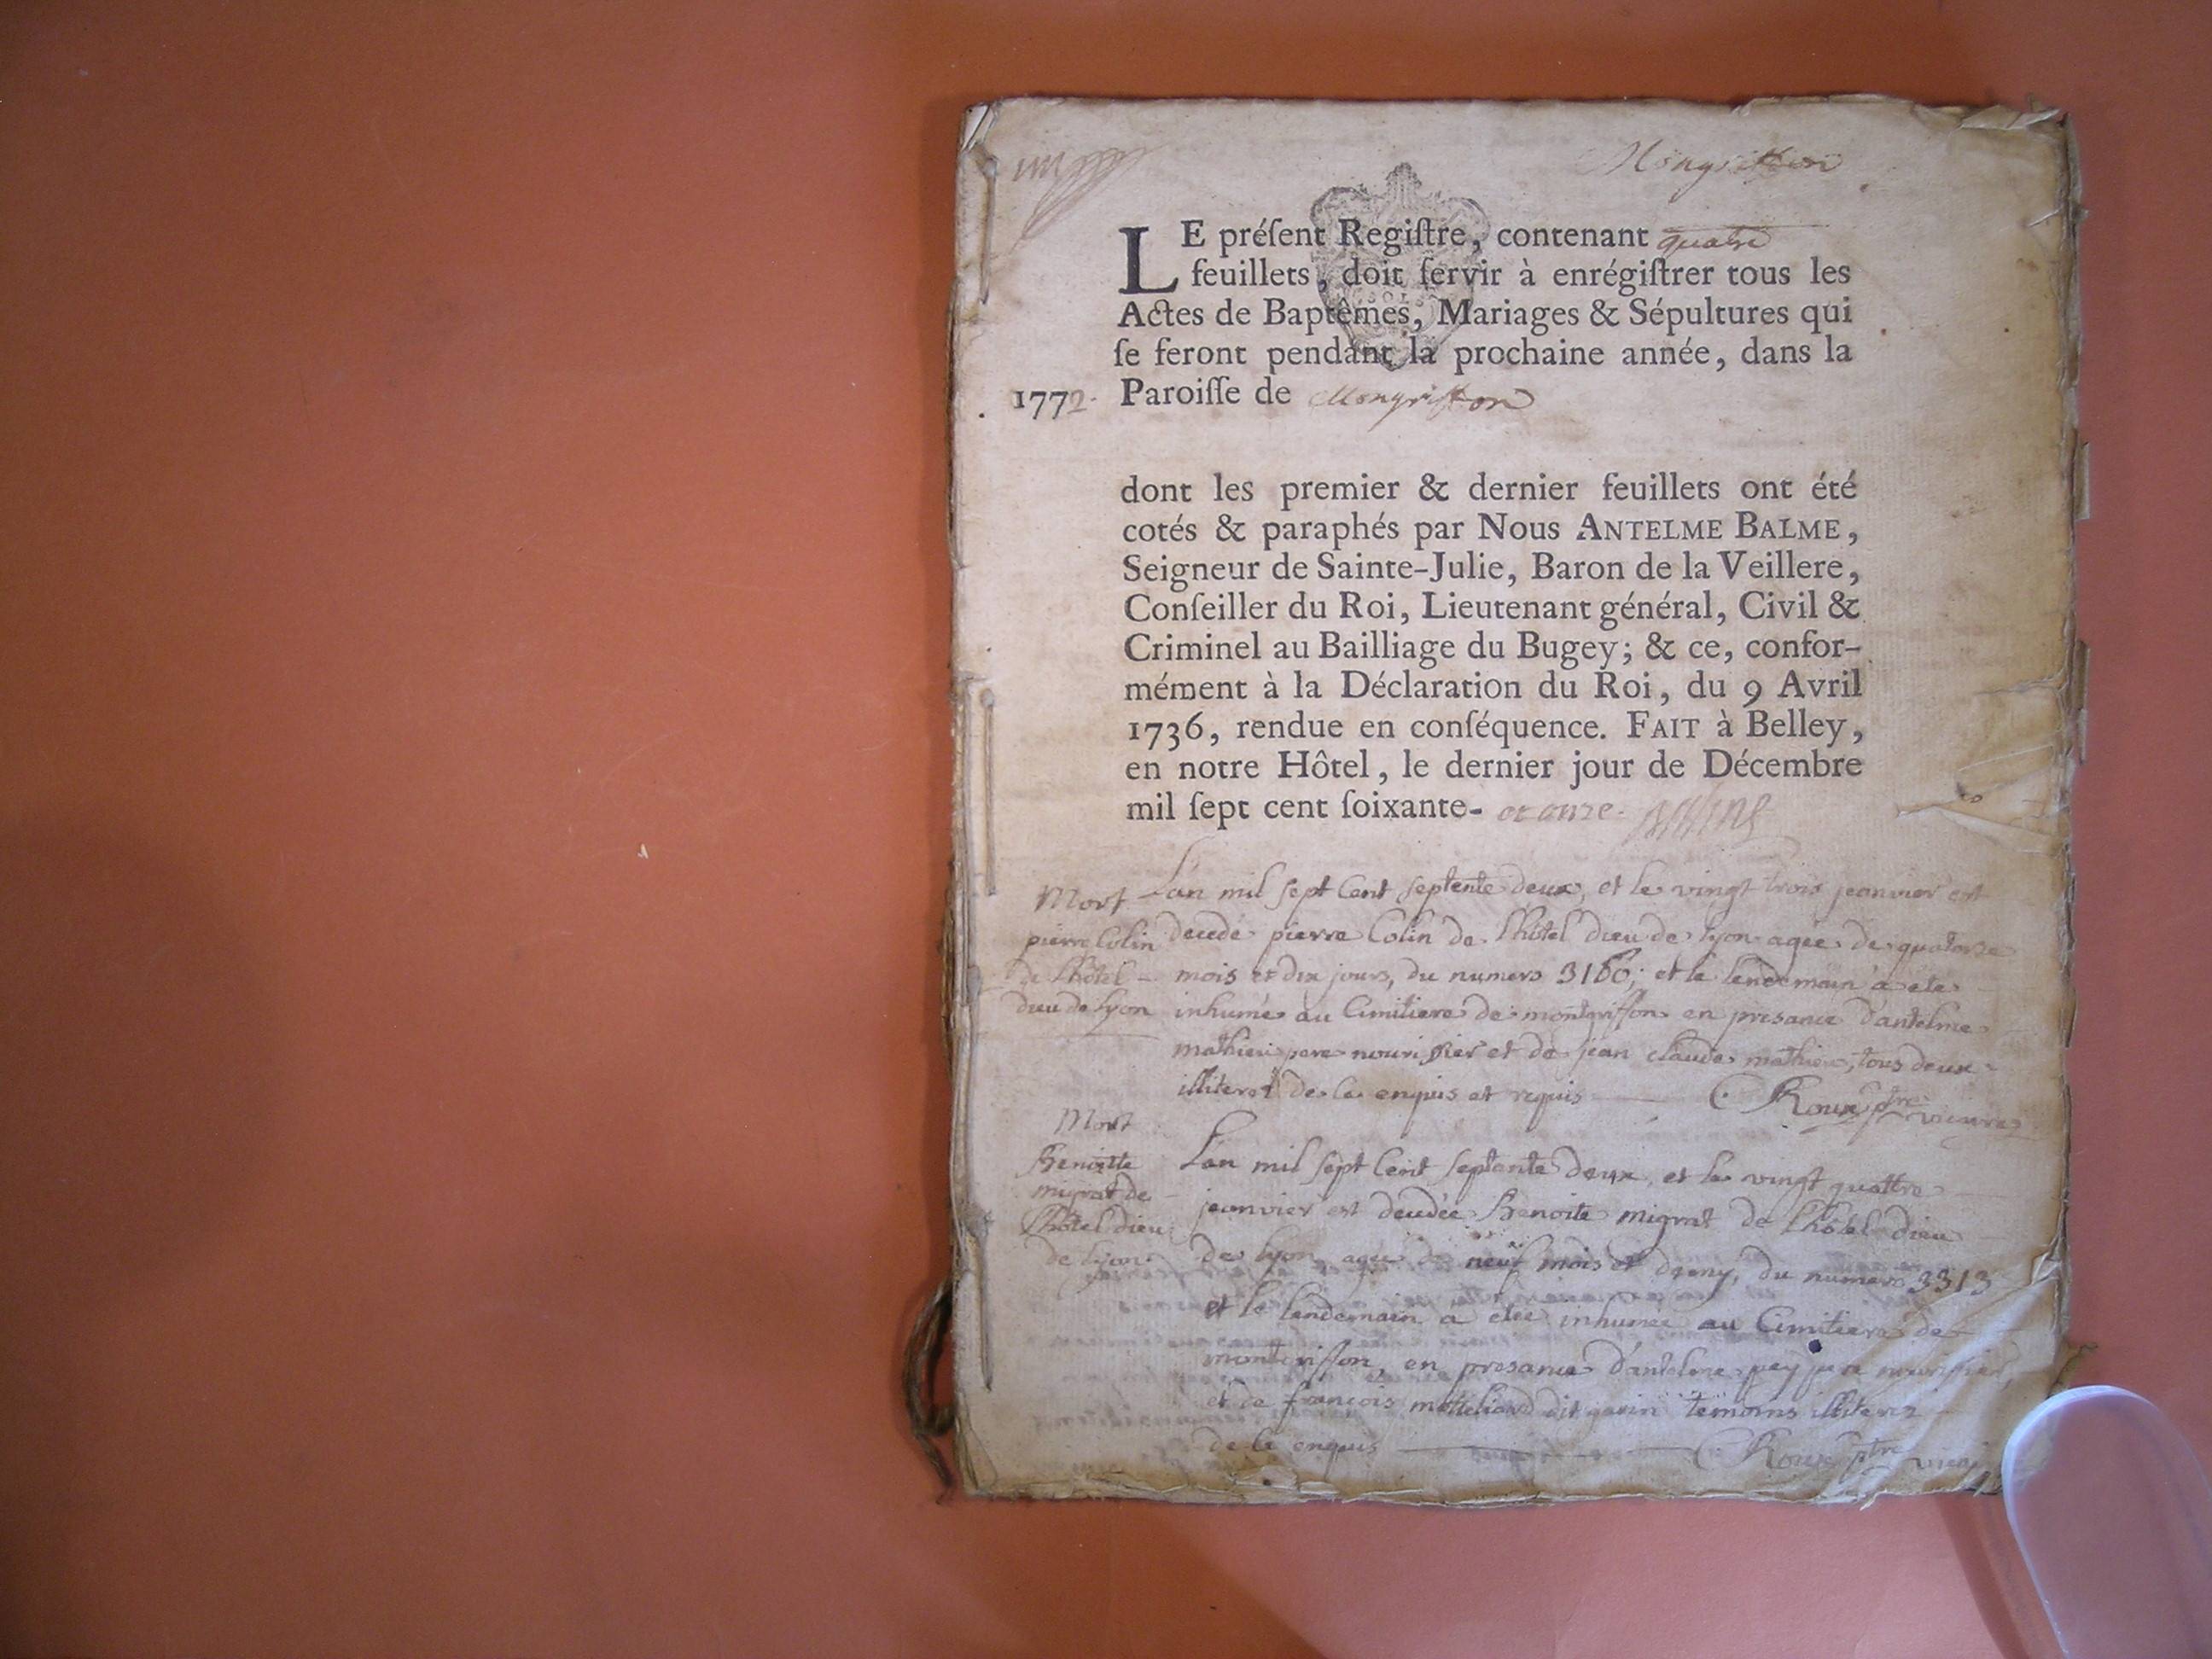 Mongriffon
LE préſent Regiſtre, contenant quatre
feuillets, doit ſervir à enrégiſtrer tous les
Actes de Baptêmes, Mariages & Sépultures qui
ſe feront pendant la prochaine année, dans la
1772. Paroiſſe de Mongriffon
dont les premier & dernier feuillets ont été
cotés & paraphés par Nous ANTELME BALME,
Seigneur de Sainte-Julie, Baron de la Veillere,
Conſeiller du Roi, Lieutenant général, Civil &
Criminel au Bailliage du Bugey; & ce, confor-
mément à la Déclaration du Roi, du 9 Avril
1736, rendue en conſéquence. FAIT à Belley,
en notre Hôtel, le dernier jour de Décembre
mil ſept cent ſoixante- et onze. Balme
Mort
pierre Colin
de l'hôtel
dieu de lyon
L'an mil sept Cent septente deux, et le vingt trois jeanvier est
decede pierre Colin de l'hôtel dieu de lyon agée de quatorze
mois et dix jours, du numero 3160; et le lendemain a ete
inhumé au Cimitiere de montgriffon en presance d'antelme
mathieu pere nourissier et de jean claude mathieu, tous deux
illiteres de ce enquis et requis C. Roux ptre vicaire
Mort
Benoitte
migrat de
l'hôtel dieu
de lyon
L'an mil sept Cent septante deux, et le vingt quattre
jeanvier est decedée Benoite migrat de l'hôtel dieu
de lyon agée de neuf mois et demy, du numero 3313
et le lendemain a etée inhumée au Cimitiere de
montgriffon, en presance d'antelme pey pere nourissier,
et de françois dit temoins illiteres
de ce enquis C. Roux ptre